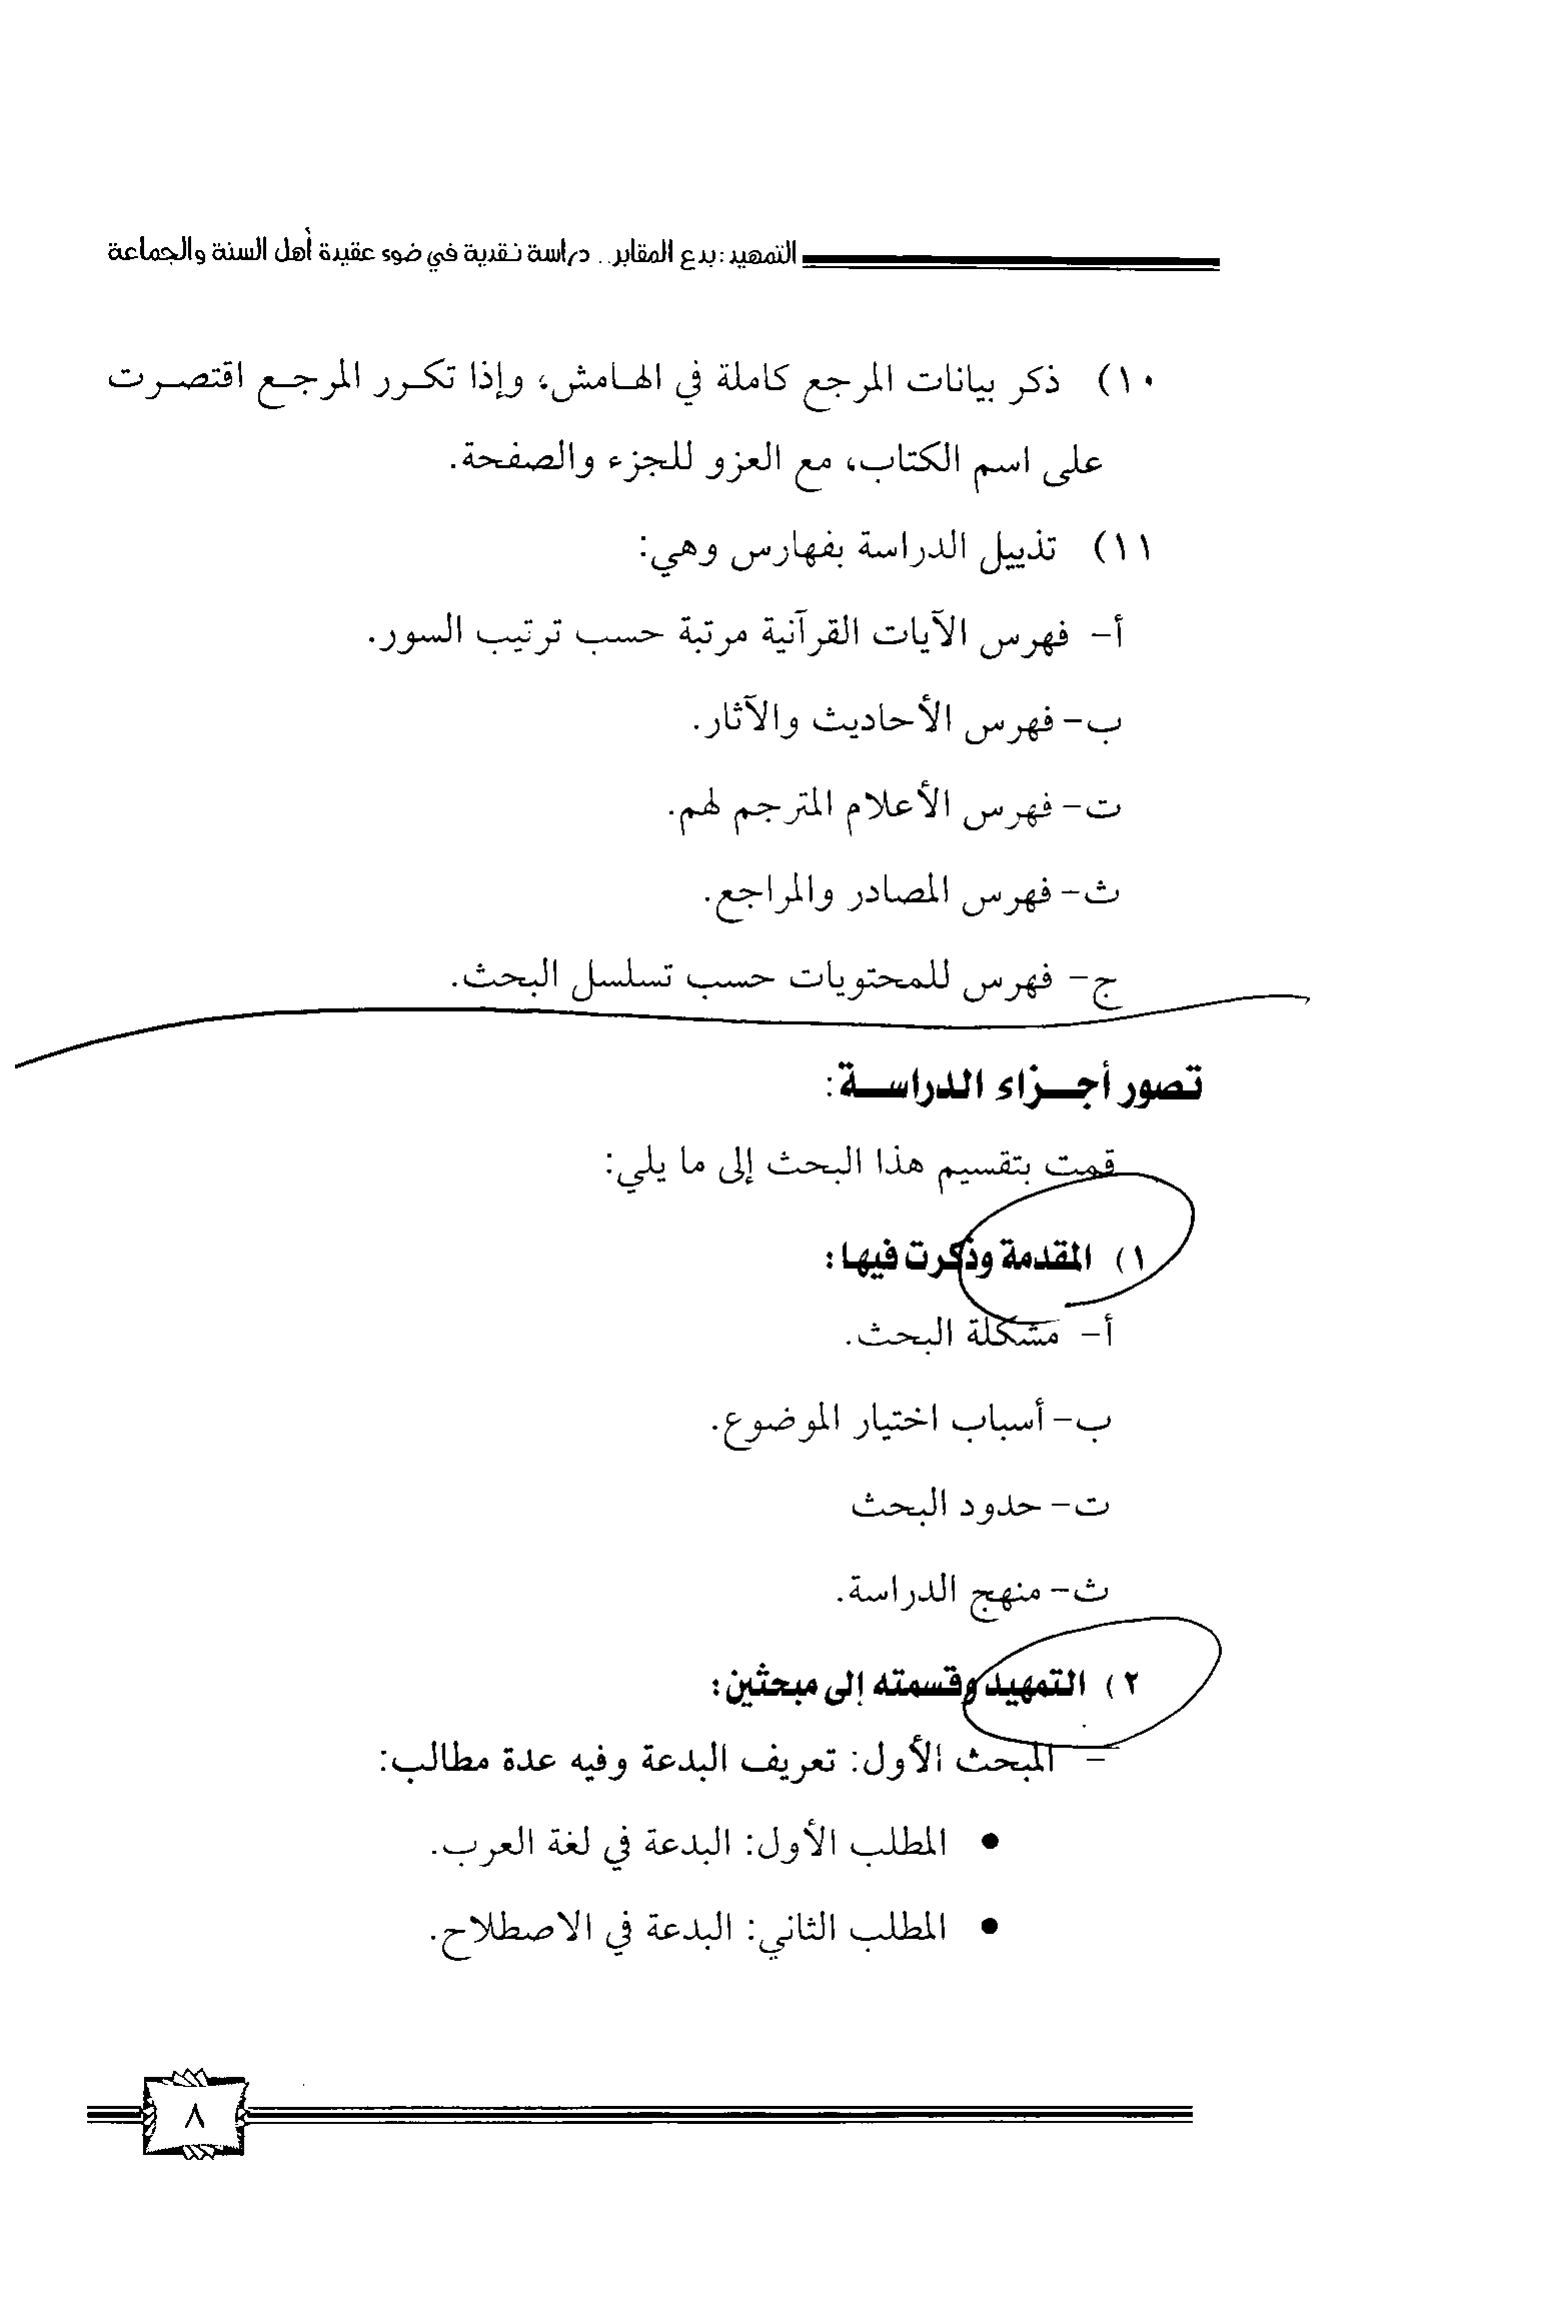 التمهيد: بدع المقابر.. دراسة نقدية في ضوء عقيدة أهل السنة والجماعة
١٠) ذكر بيانات المرجع كاملة في الهامش، وإذا تكرر المرجع اقتصرت
على اسم الكتاب، مع العزو للجزء والصفحة.
١١) تذييل الدراسة بفهارس وهي:
أ- فهرس الآيات القرآنية مرتبة حسب ترتيب السور.
ب- فهرس الأحاديث والآثار.
ت- فهرس الأعلام المترجم لهم.
ث- فهرس المصادر والمراجع.
ج- فهرس للمحتويات حسب تسلسل البحث.
تصور أجزاء الدراسة:
قمت بتقسيم هذا البحث إلى ما يلي:
١) المقدمة وذكرت فيها:
أ- مشكلة البحث.
ب- أسباب اختيار الموضوع.
ت- حدود البحث
ث- منهج الدراسة.
٢) التمهيد وقسمته إلى مبحثين:
- المبحث الأول: تعريف البدعة وفيه عدة مطالب:
• المطلب الأول: البدعة في لغة العرب.
• المطلب الثاني: البدعة في الاصطلاح.
٨